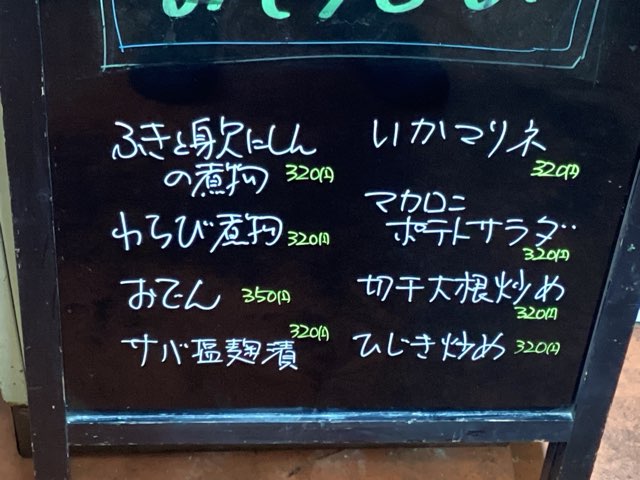 ふきと身欠にしん
の煮物 320円
わらび煮物 320円
おでん 350円
サバ塩麹漬 320円
いかマリネ
320円
マカロニ
ポテトサラダ
320円
切干大根炒め
320円
ひじき炒め 320円